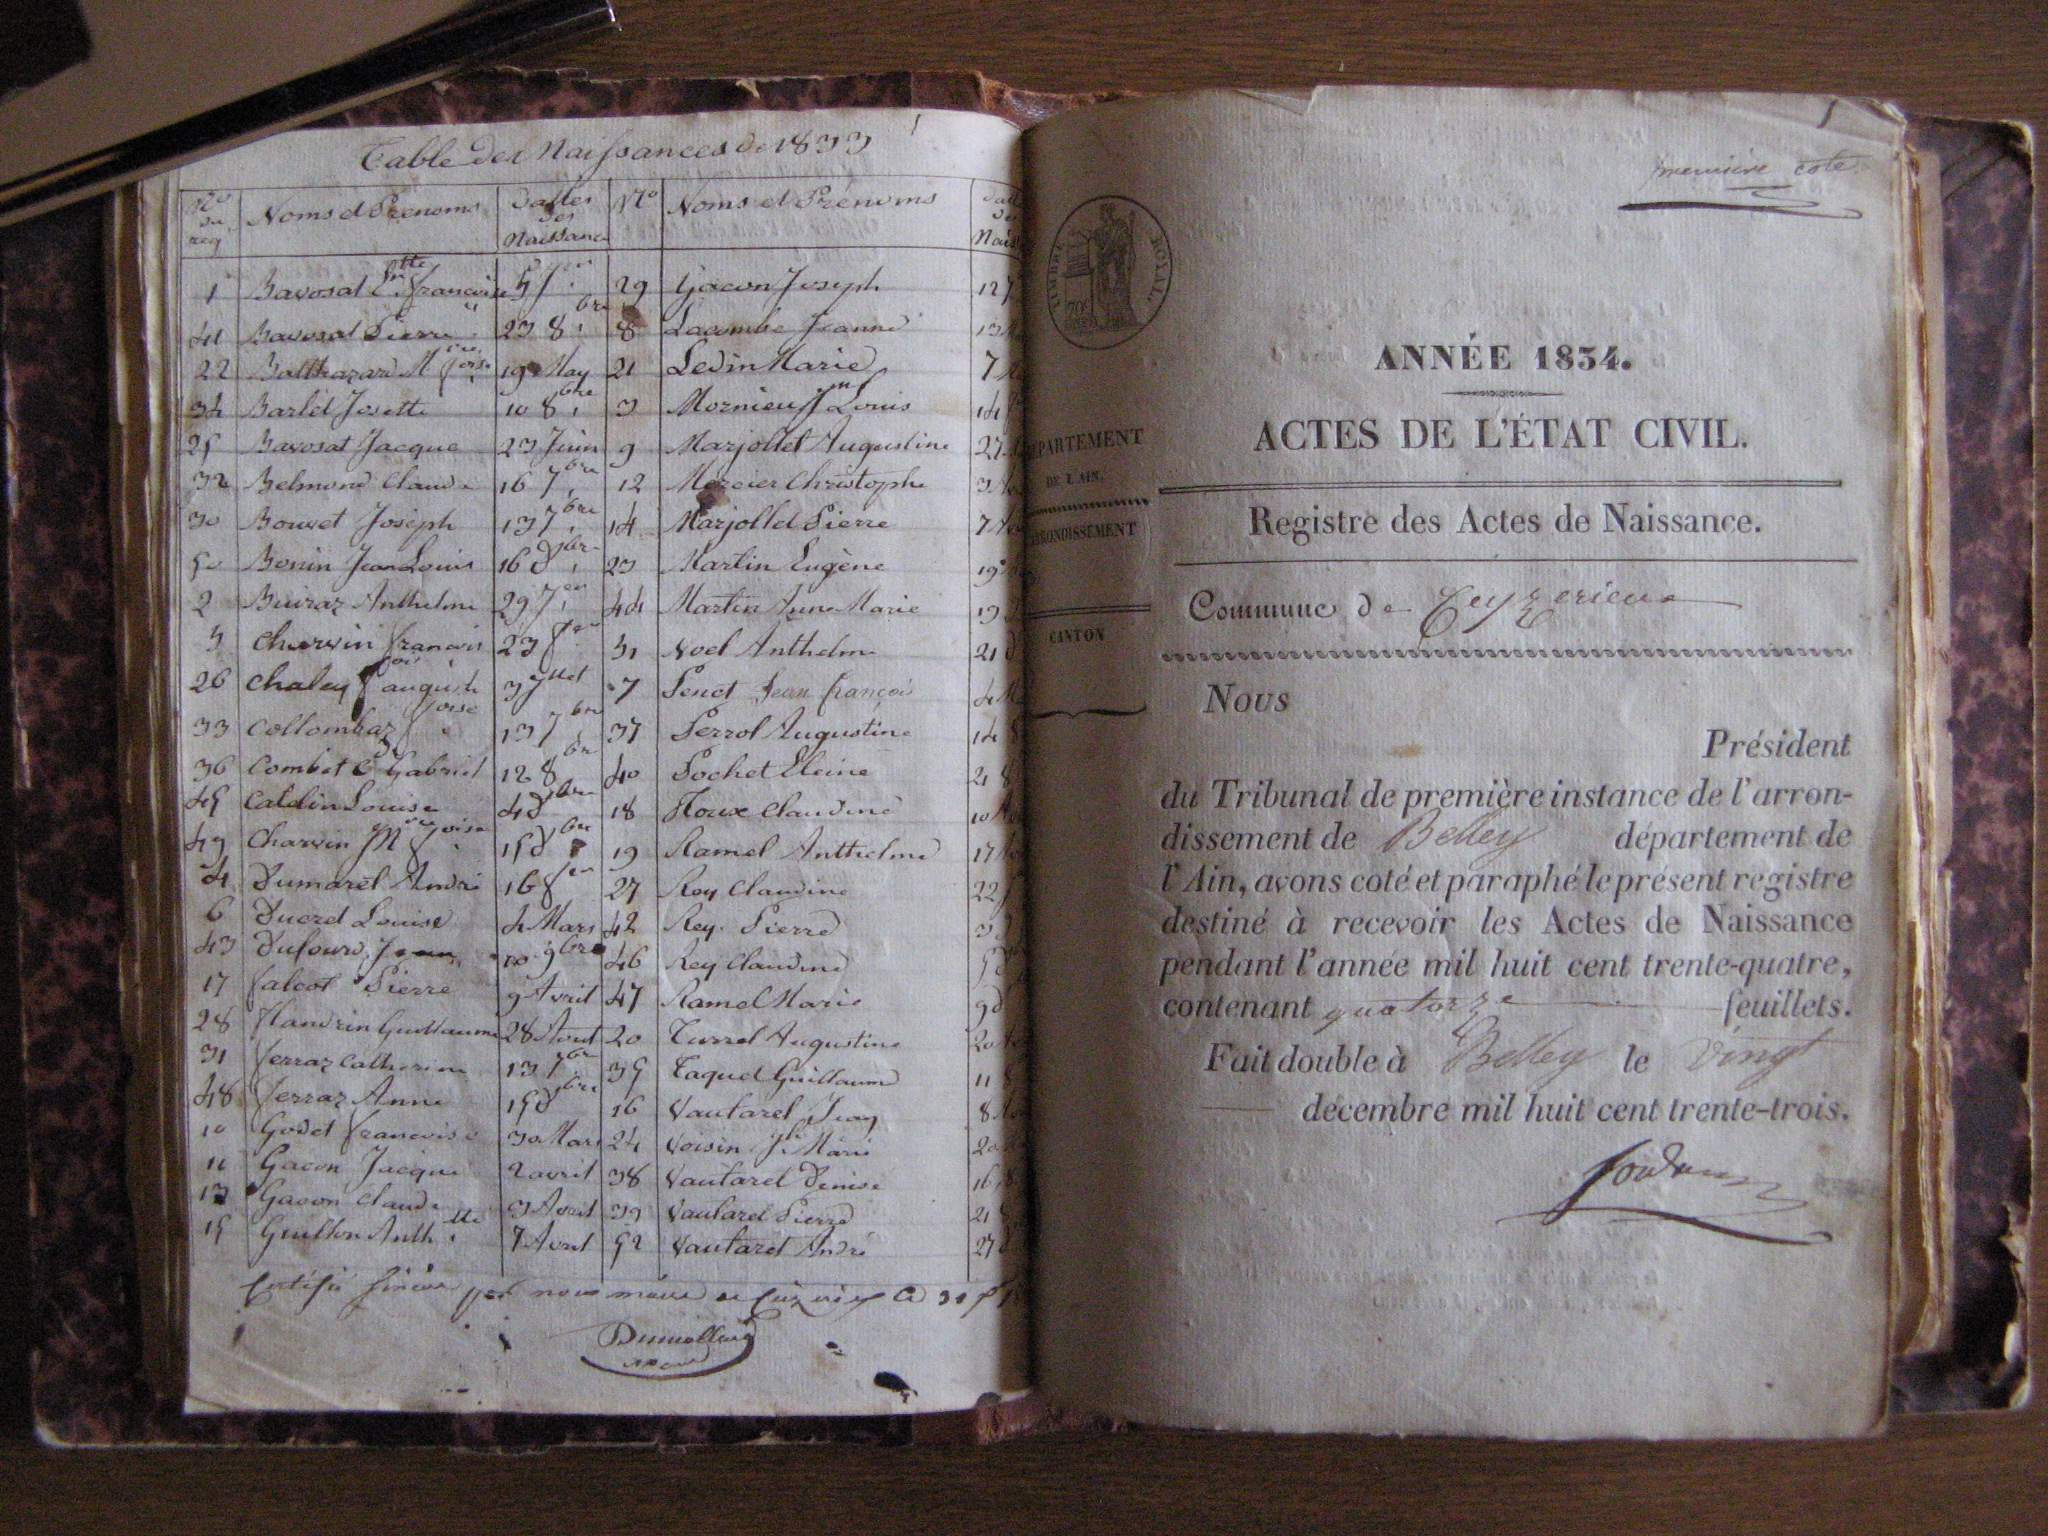 Table des Naissances de 1833
No du reg
Noms et Prénoms
Dattes des Naissance
No
Noms et Prénoms
1 Bavosat françoise 29 Gacon Joseph 12
41 Bavosat Pierre 23 8bre 8 Lacombe Jeanne 13
22 Balthazard Mrie foise 19 May 21 Ledin Marie 7
34 Barlet Josette 10 8bre 3 Mornieux Louis 14
25 Bavosat Jacque 23 Juin 9 Marjollet Augustine 27
32 Belmond Claude 16 7bre 12 Mercier Christophe 3
30 Bouvet Joseph 13 7bre 14 Marjollet Pierre 7
50 Bonin Jean Louis 16 dbre 23 Martin Eugène 19
2 Buiraz Anthelme 29 44 Martin Anne Marie 13
5 Charvin françois 23 51 Noel Anthelme 21
26 Chaley auguste 3 Jllet 7 Penet Jean françois 4
33 Collombaz foise 13 7bre 37 Perrol Augustine 14 8
36 Combet Gabriel 12 8bre 40 Pochet Eleine 21 8
45 Catelin Louise 4 dbre 18 Roux Claudine 10
49 Charvin Mrie foise 15 dbre 19 Ramel Anthelme 17
4 Dumarel André 16 fer 27 Rey Claudine 22
6 Ducret Louise 4 Mars 42 Rey Pierre 3
43 Dufour Jean 10 9bre 46 Rey Claudine 5
17 falcot Pierre 9 Avril 47 Ramel Marie 9
28 flandrin Guillaume 28 Aout 20 Turrel Augustine 20
31 ferraz Catherine 13 7bre 35 Taquet Guillaume 11 8
48 ferraz Anne 15 dbre 16 Vautaret Jean 8
10 Godet françoise 30 Mars 24 Voisin Marie 20
11 Gacon Jacque 2 avril 38 Vautaret Denise 16 8
13 Gacon Claude 3 Avril 39 Vautaret Pierre 21
15 Guillon Anthtte 7 Avril 52 Vautaret André 27
Certifié sincère par nous maire de
première cote
TIMBRE ROYAL
70c
ANNÉE 1834.
ACTES DE L'ÉTAT CIVIL.
DÉPARTEMENT
DE L'AIN.
Registre des Actes de Naissance.
ARRONDISSEMENT
Commune de Ceyzerieu
CANTON
Nous
Président
du Tribunal de première instance de l'arron-
dissement de Belley département de
l'Ain, avons coté et paraphé le présent registre
destiné à recevoir les Actes de Naissance
pendant l'année mil huit cent trente-quatre,
contenant quatorze feuillets.
Fait double à Belley le vingt
decembre mil huit cent trente-trois.